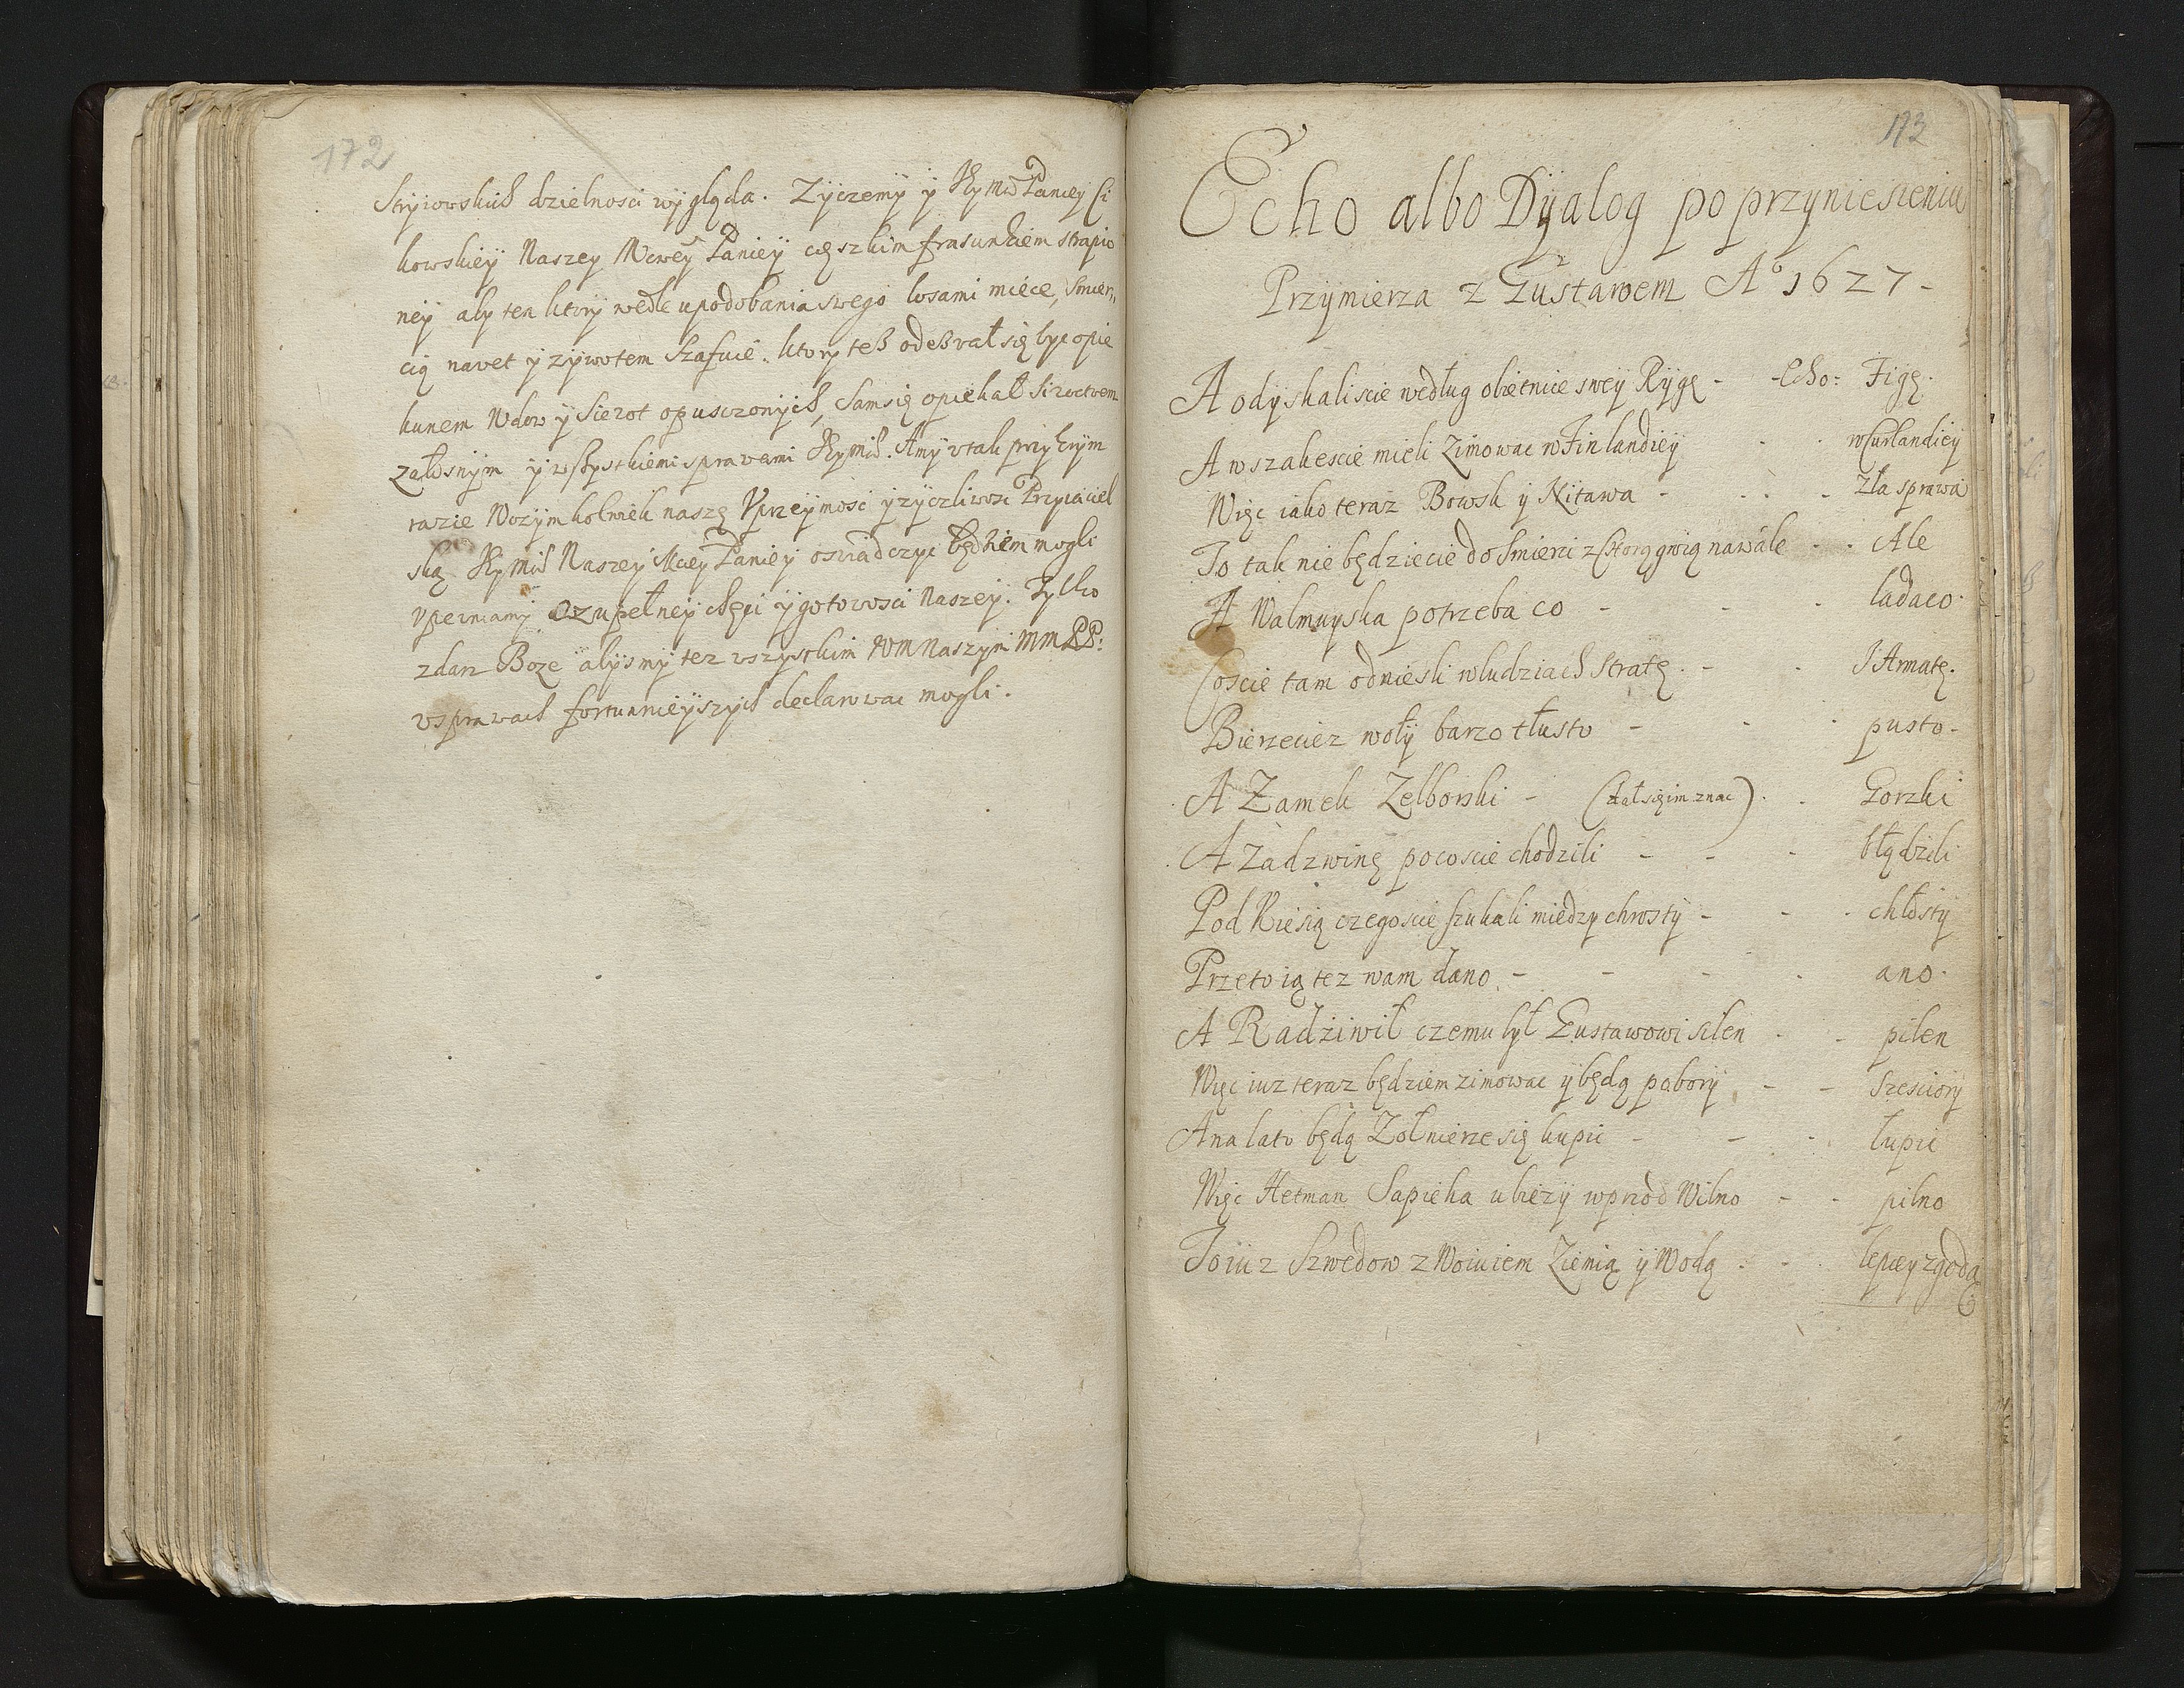 172
Stryiowskich dzielnosci wygląda. Zyczemy y Jey Mci Paniey Ci
kowskiey Naszey Mcwey Paniey cięszkim frasunkiem strapio
ney aby ten ktory wedle upodobania swego losami miece, smier„
cią navet y zywotem szafuie. ktory tesz odeszwał się byc opie
kunem Wdow y Sierot opusczonych, Sam się opiekał Siroctwem
załosnym y wszystkiemi sprawami Jey Mci. A my v tak przykrym
razie Wozym kolwiek naszę Vprzeymosć y zyczliwosc Przyiaciel
ską Jey Mci Naszey Mciey Paniey oswiadczyc będziem mogli
vpewniamy o zupełney chęci y gotowosci Naszey. Tylko
zdarz Boze abysmy tez wszystkim WM Naszym MM PP:
v sprawach fortunnieyszych declarowac mogli.
173
Echo albo Dyalog po przyniesieniu
Przymierza z Gustawem Aº 1627 -
A odyskaliscie według obietnice swey Rygę - - Echo: Figę.
A wszakescie mieli Zimowac w Finlandiey - - w Curlandiey
Więc iako teraz Bowsk y Nitawa - - - - zła sprawa
To tak nie będziecie do smierci z gwią nawale - - Ale
A Walmuyska potrzeba co - - - ladaco.
Coscie tam odniesli w ludziach Stratę. - - I Armatę.
Bierzeciez woły barzo tłusto - - - pusto -
A Zamek Zelborski - (dał się im znac) . . Gorzki
A Zadzwinę pocoscie chodzili - - - błądzili
Pod Kiesią czegoscie szukali miedzy chrosty - - - chłosty
Przeto ią tez wam dano - - - - ano.
A Radziwił czemu był Gustawowi silen - - pilen
Więc iuz teraz będziem zimowac y będą pobory - - szesciory
A na lato będą Zołnierze się kupic - - - łupic
Więc Hetman Sapieha ubiezy wprzod Wilno - - pilno
To iuz Szwedow z Woiuiem Ziemią y Wodą : - . lepiey zgodą